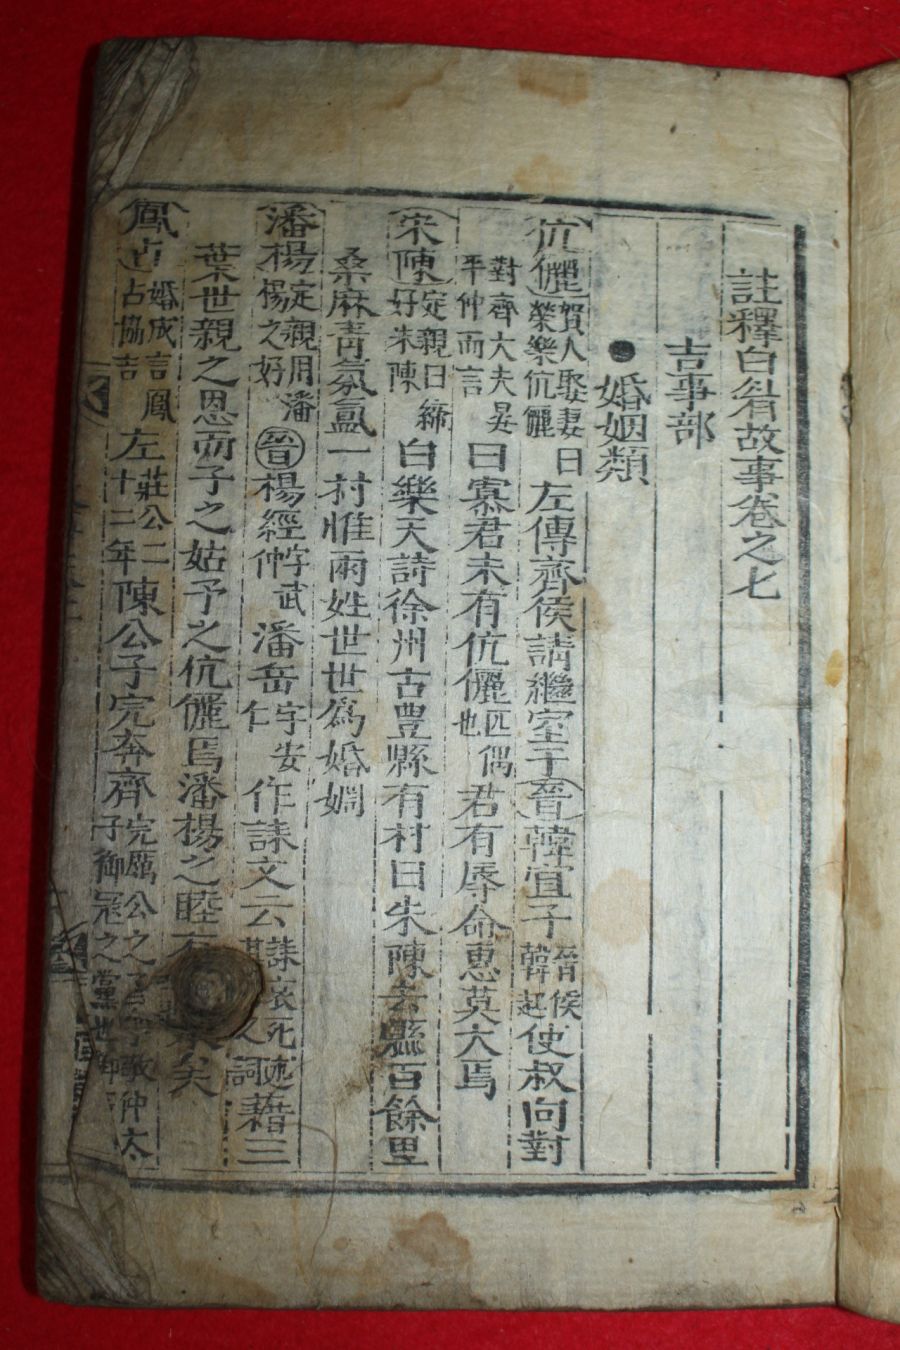 註釋白眉故事卷之七
吉事部
●婚姻類
伉儷 賀人娶妻曰榮樂伉儷 左傳齊侯請繼室于晉韓宣子 晉侯韓起 使叔向對
對齊大夫晏平仲而言 曰寡君未有伉儷 匹偶也 君有辱命惠莫大焉
朱陳 定親曰締好朱陳 白樂天詩徐州古豊縣有村曰朱陳去縣百餘里
桑麻靑氛氳一村惟兩姓世世爲婚媚
潘楊 定親用潘楊之好 晉楊經 字武仲 潘岳 字安仁 作誄文云 誄哀死述人詞 藉三
葉世親之恩而子之姑予之伉儷焉潘楊之睦有矣
鳳占 婚成言鳳占協吉 左 莊公二十二年 陳公子完奔齊 完厲公之子敬仲太子御寇之黨也